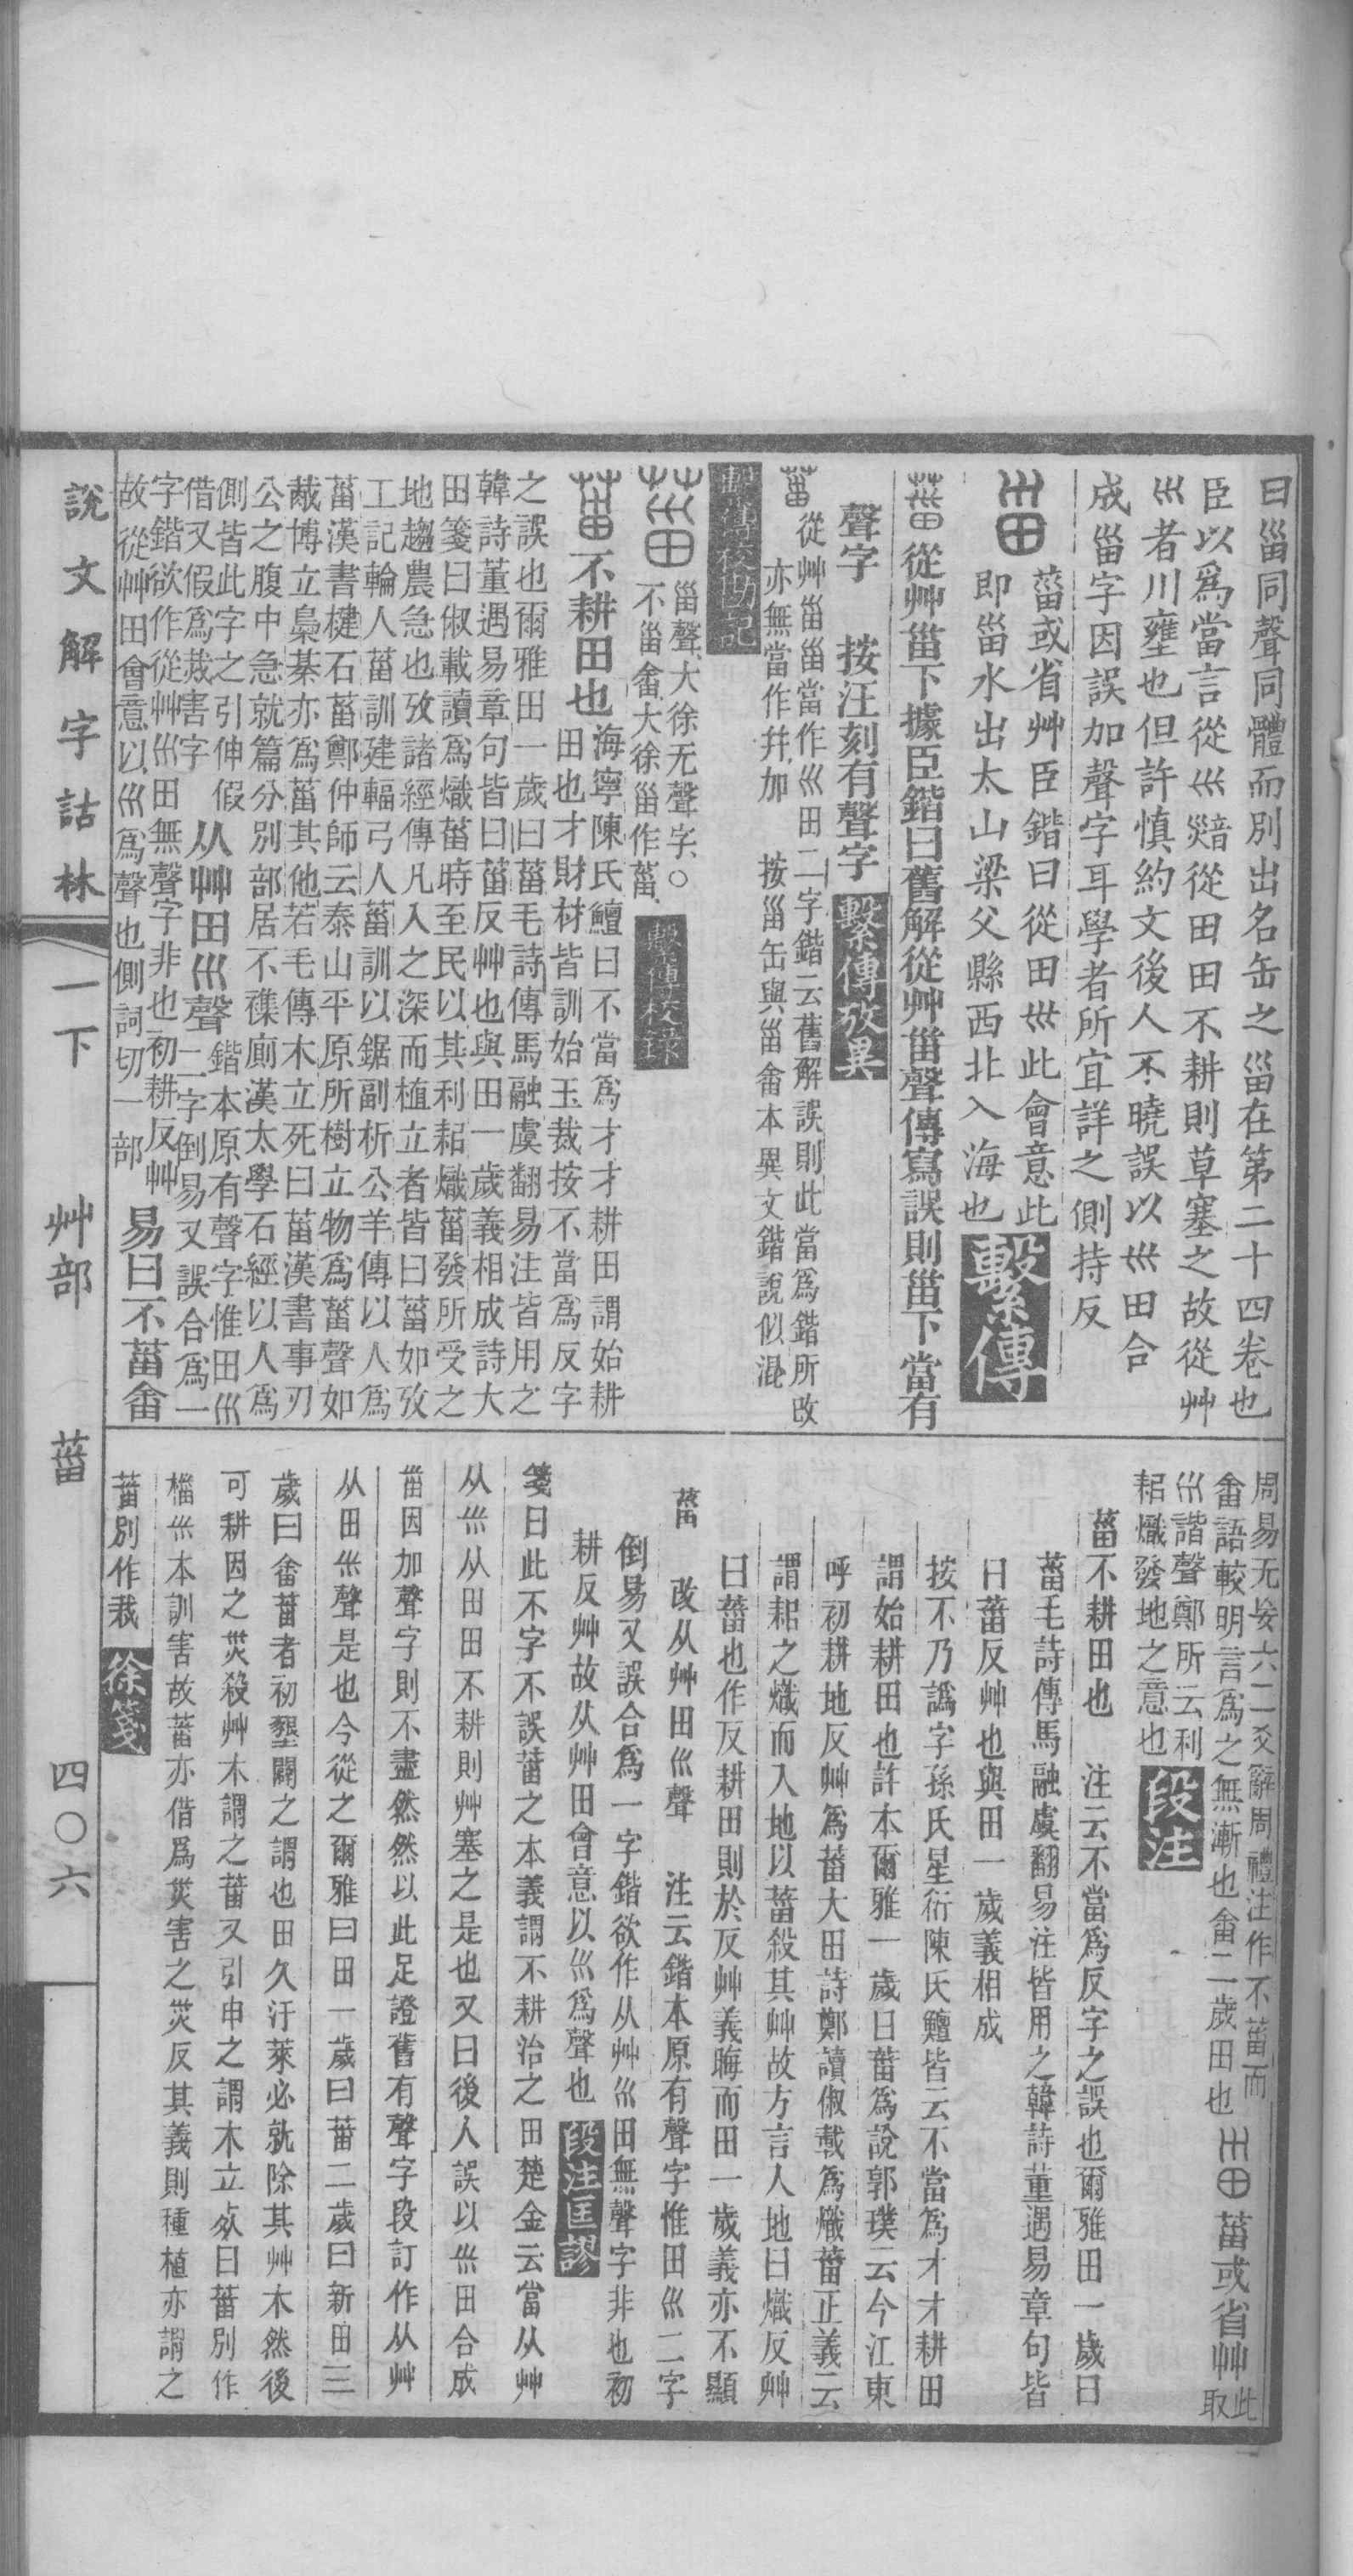 曰甾同聲同體而別出名缶之甾在第二十四卷也
臣以爲當言從巛䇂從田田不耕則草塞之故從艸
巛者川壅也但許慎約文後人不曉誤以巛田合
成甾字因誤加聲字耳學者所宜詳之側持反
菑或省艸臣鍇曰從田巛此會意此
即甾水出太山梁父縣西北入海也繫傳
菑從艸甾下據臣鍇曰舊解從艸甾聲傳寫誤則甾下當有
聲字 按汪刻有聲字繫傳攷異
菑從艸甾甾當作巛田二字鍇云舊解誤則此當爲鍇所改
亦無當作幷加 按甾缶與甾畬本異文鍇說似混
繫傳校勘記
甾聲大徐无聲字○
不甾畬大徐甾作菑繫傳校錄
菑不耕田也海寧陳氏鱣曰不當爲才才耕田謂始耕
田也才財材皆訓始玉裁按不當爲反字
之誤也爾雅田一歲曰菑毛詩傳馬融虞翻易注皆用之
韓詩董遇易章句皆曰菑反艸也與田一歲義相成詩大
田箋曰俶載讀爲熾菑時至民以其利耜熾菑發所受之
地趨農急也攷諸經傳凡入之深而植立者皆曰菑如攷
工記輪人菑訓建輻弓人菑訓以鋸副析公羊傳以人爲
菑漢書楗石菑鄭仲師云泰山平原所樹立物爲菑聲如
胾博立梟棊亦爲菑其他若毛傳木立死曰菑漢書事刃
公之腹中急就篇分別部居不襍廁漢太學石經以人爲
側皆此字之引伸假
借又假爲烖害字从艸田巛聲鍇本原有聲字惟田巛
二字倒易又誤合爲一
字鍇欲作從艸巛田無聲字非也初耕反艸
故從艸田會意以巛爲聲也側詞切一部易曰不菑畬
周易无妄六二爻辭周禮注作不菑而
畬語較明言爲之無漸也畬二歲田也甾菑或省艸此取
巛諧聲鄭所云利
耜熾發地之意也段注
菑不耕田也 注云不當爲反字之誤也爾雅田一歲曰
菑毛詩傳馬融虞翻易注皆用之韓詩董遇易章句皆
曰菑反艸也與田一歲義相成
按不乃譌字孫氏星衍陳氏鱣皆云不當爲才才耕田
謂始耕田也許本爾雅一歲曰菑爲說郭璞云今江東
呼初耕地反艸爲菑大田詩鄭讀俶載爲熾菑正義云
謂耜之熾而入地以菑殺其艸故方言入地曰熾反艸
曰菑也作反耕田則於反艸義晦而田一歲義亦不顯
菑 改从艸田巛聲 注云鍇本原有聲字惟田巛二字
倒易又誤合爲一字鍇欲作从艸巛田無聲字非也初
耕反艸故从艸田會意以巛爲聲也段注匡謬
箋曰此不字不誤菑之本義謂不耕治之田楚金云當从艸
从巛从田田不耕則艸塞之是也又曰後人誤以巛田合成
甾因加聲字則不盡然然以此足證舊有聲字段訂作从艸
从田巛聲是也今從之爾雅曰田一歲曰菑二歲曰新田三
歲曰畬菑者初墾闢之謂也田久汙萊必就除其艸木然後
可耕因之災殺艸木謂之菑又引申之謂木立死曰菑別作
椔巛本訓害故菑亦借爲災害之災反其義則種植亦謂之
菑別作栽徐箋
說文解字詁林 一下 艸部 菑 四〇六